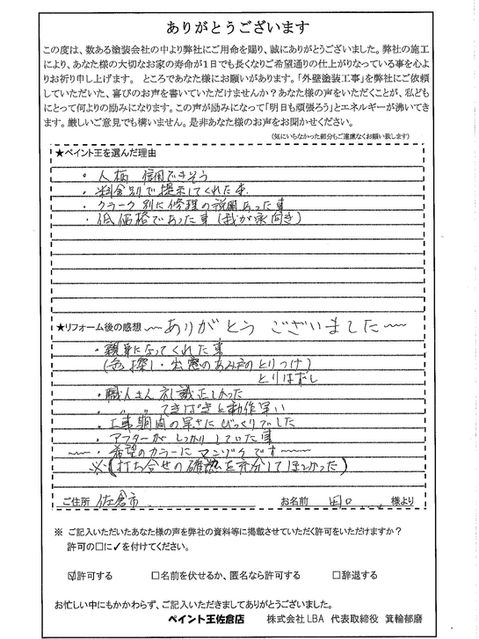 ありがとうございます
この度は、数ある塗装会社の中より弊社にご用命を賜り、誠にありがとうございました。弊社の施工
により、あなた様の大切なお家の寿命が1日でも長くなりご希望通りの仕上がりなっている事を心より
お祈り申し上げます。 ところであなた様にお願いがあります。「外壁塗装工事」を弊社にご依頼
していただいた、喜びのお声を書いていただけませんか?あなた様の声をいただくことが、私ども
にとって何よりの励みになります。この声が励みになって「明日も頑張ろう」とエネルギーが沸いてき
ます。厳しいご意見でも構いません。是非あなた様のお声をお聞かせください。
(気にいらなかった部分もご遠慮なくお願い致します)
★ペイント王を選んだ理由
・人柄 信用できそう
・料金別で提示してくれた事
・クラーク別に修理の説明あった事
・低価格であった事(我が家向き)
★リフォーム後の感想 ～ありがとう ございました～
・親身になってくれた事
(色探し・出窓のあみ戸のとりつけ)
とりはずし
・職人さん 礼儀正しかった
・ 〃 〃 てきぱきと動作早い
・工事期間の早さにびっくりでした
・アフターが しっかりしていた事
～・希望のカラーにマンゾクです～
※(打ち合せの確認を充分してほしかった)
ご住所 佐倉市 お名前 田口 様より
※ ご記入いただいたあなた様の声を弊社の資料等に掲載させていただく許可をいただけますか?
許可の□に✓を付けてください。
☑許可する □名前を伏せるか、匿名なら許可する □辞退する
お忙しい中にもかかわらず、ご記入いただきましてありがとうございました。
ペイント王佐倉店 株式会社LBA 代表取締役 箕輪郁磨